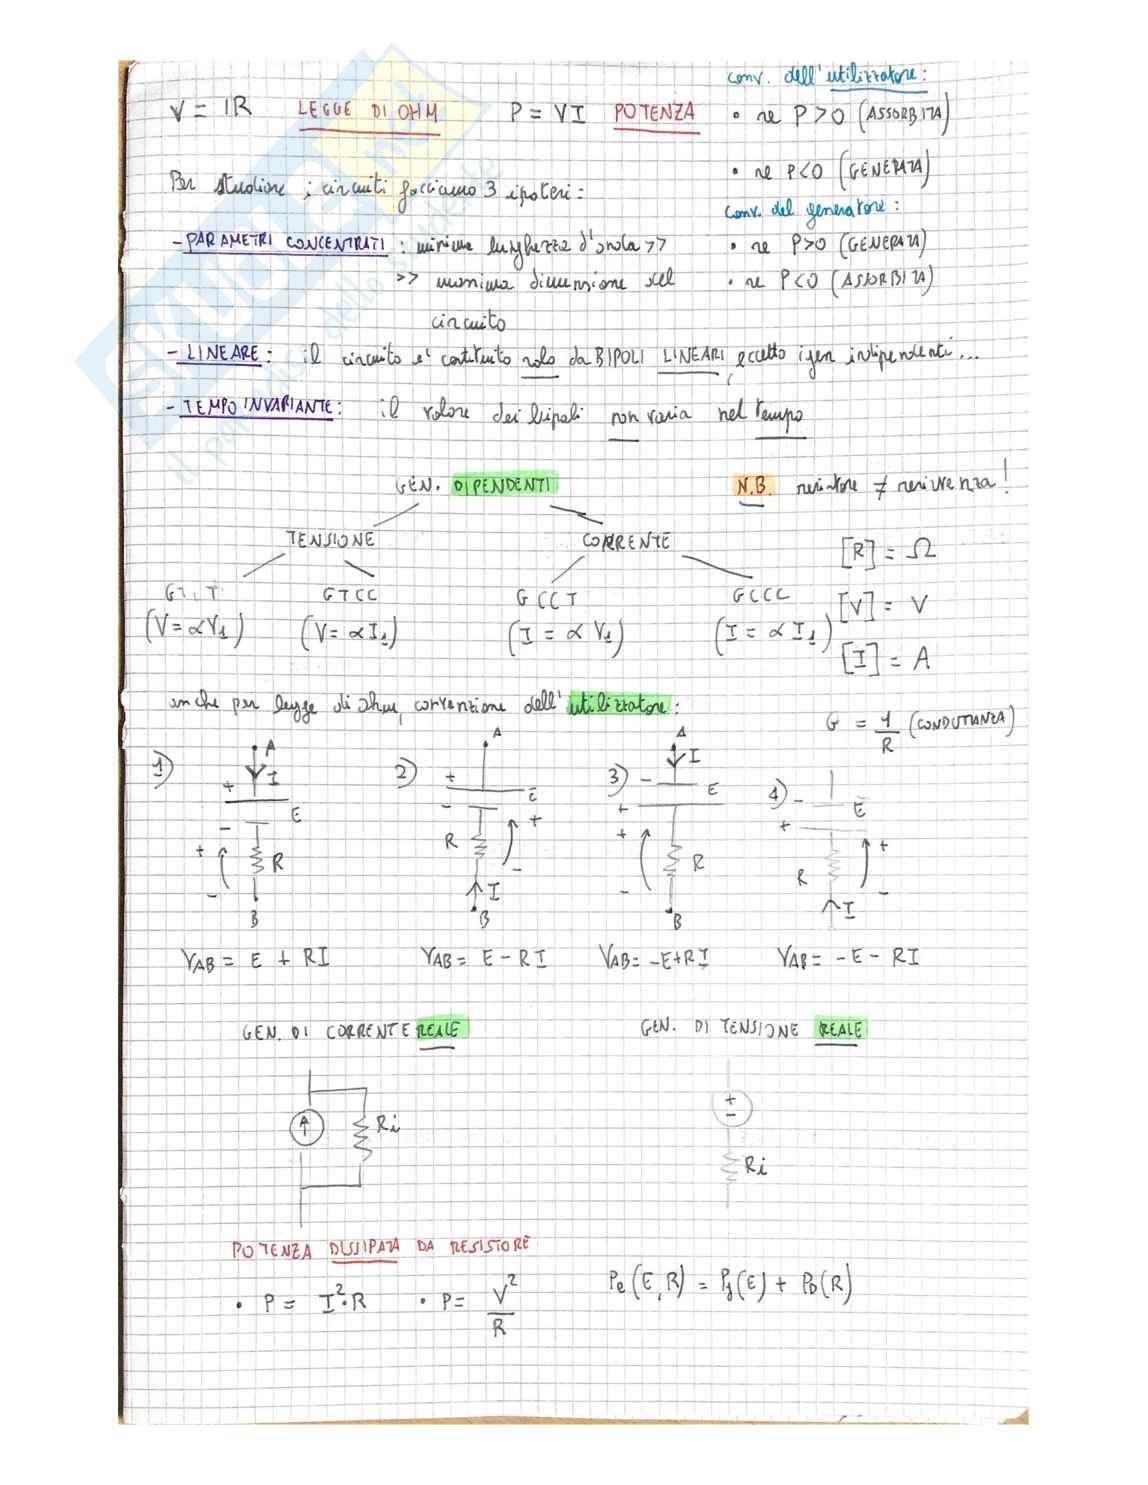 V = IR LEGGE DI OHM P = VI POTENZA
conv. dell'utilizzatore:
• se P>0 (ASSORBITA)
• se P<0 (GENERATA)
conv. del generatore:
• se P>0 (GENERATA)
• se P<0 (ASSORBITA)
Per studiare i circuiti facciamo 3 ipotesi:
- PARAMETRI CONCENTRATI: minima lunghezza d'onda >>
>> massima dimensione del
circuito
- LINEARE: il circuito e' costituito solo da BIPOLI LINEARI, eccetto i gen indipendenti...
- TEMPO INVARIANTE: il valore dei bipoli non varia nel tempo
GEN. DIPENDENTI
N.B. resistore ≠ resistenza!
TENSIONE CORRENTE
[R] = Ω
GTCC GCCT GCCC
(V=αV1) (V=αI1) (I = αV1) (I = αI1)
[V] = V
[I] = A
anche per legge di Ohm, convenzione dell'utilizzatore:
G = 1/R (CONDUTTANZA)
1) A I + - E + - R B
2) A + - E R + - I B
3) A I - + E + - R B
4) - + E R + - I
VAB = E + RI VAB = E - RI VAB = -E+RI VAB = -E - RI
GEN. DI CORRENTE REALE GEN. DI TENSIONE REALE
Ri
+
-
Ri
POTENZA DISSIPATA DA RESISTORE
• P = I²·R • P = V²/R
Pe(E,R) = Pg(E) + PD(R)